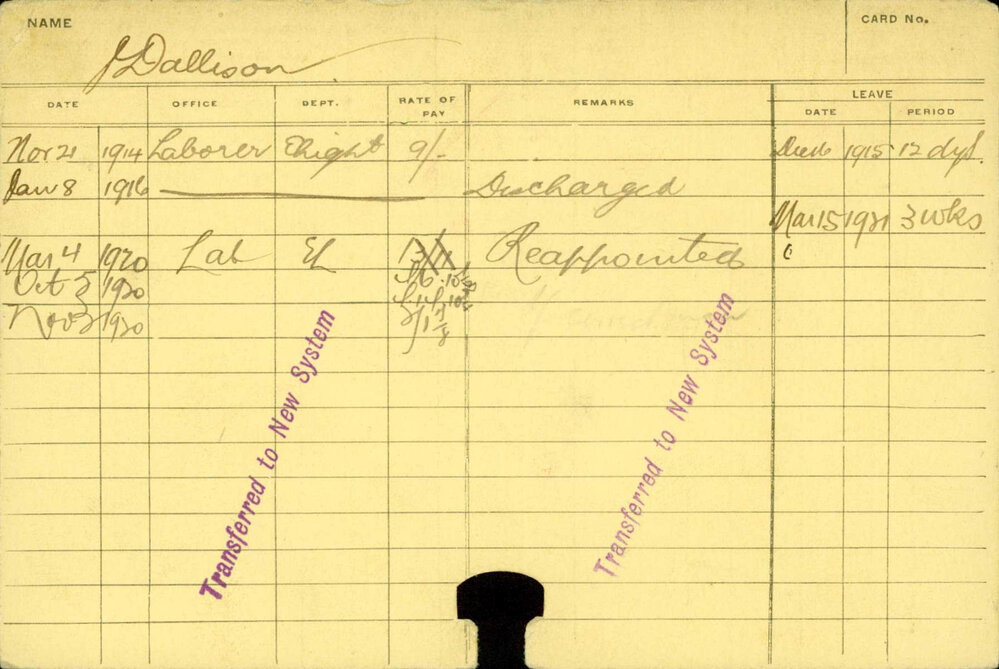 NAME
CARD No.
J Dallison
DATE OFFICE DEPT. RATE OF PAY REMARKS LEAVE
DATE PERIOD
Nov 21 1914 Laborer 9/- 1915 12 dys.
Jan 8 1916 Discharged
Mar 15 1921 3 wks
Mar 4 1920 Lab El Reappointed
Oct 1920
Nov 1920
Transferred to New System
Transferred to New System